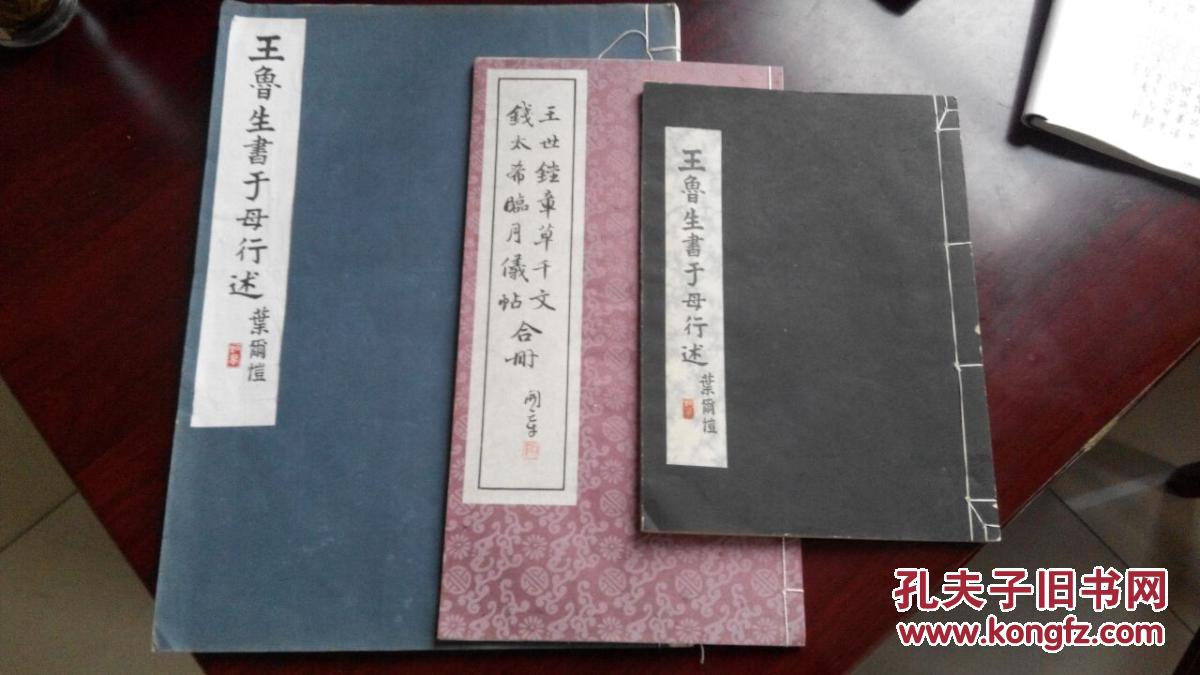 王魯生書于母行述
葉爾愷
王世鏜章草千文
錢太希臨月儀帖合冊
王魯生書于母行述
葉爾愷
孔夫子旧书网
www.kongfz.com